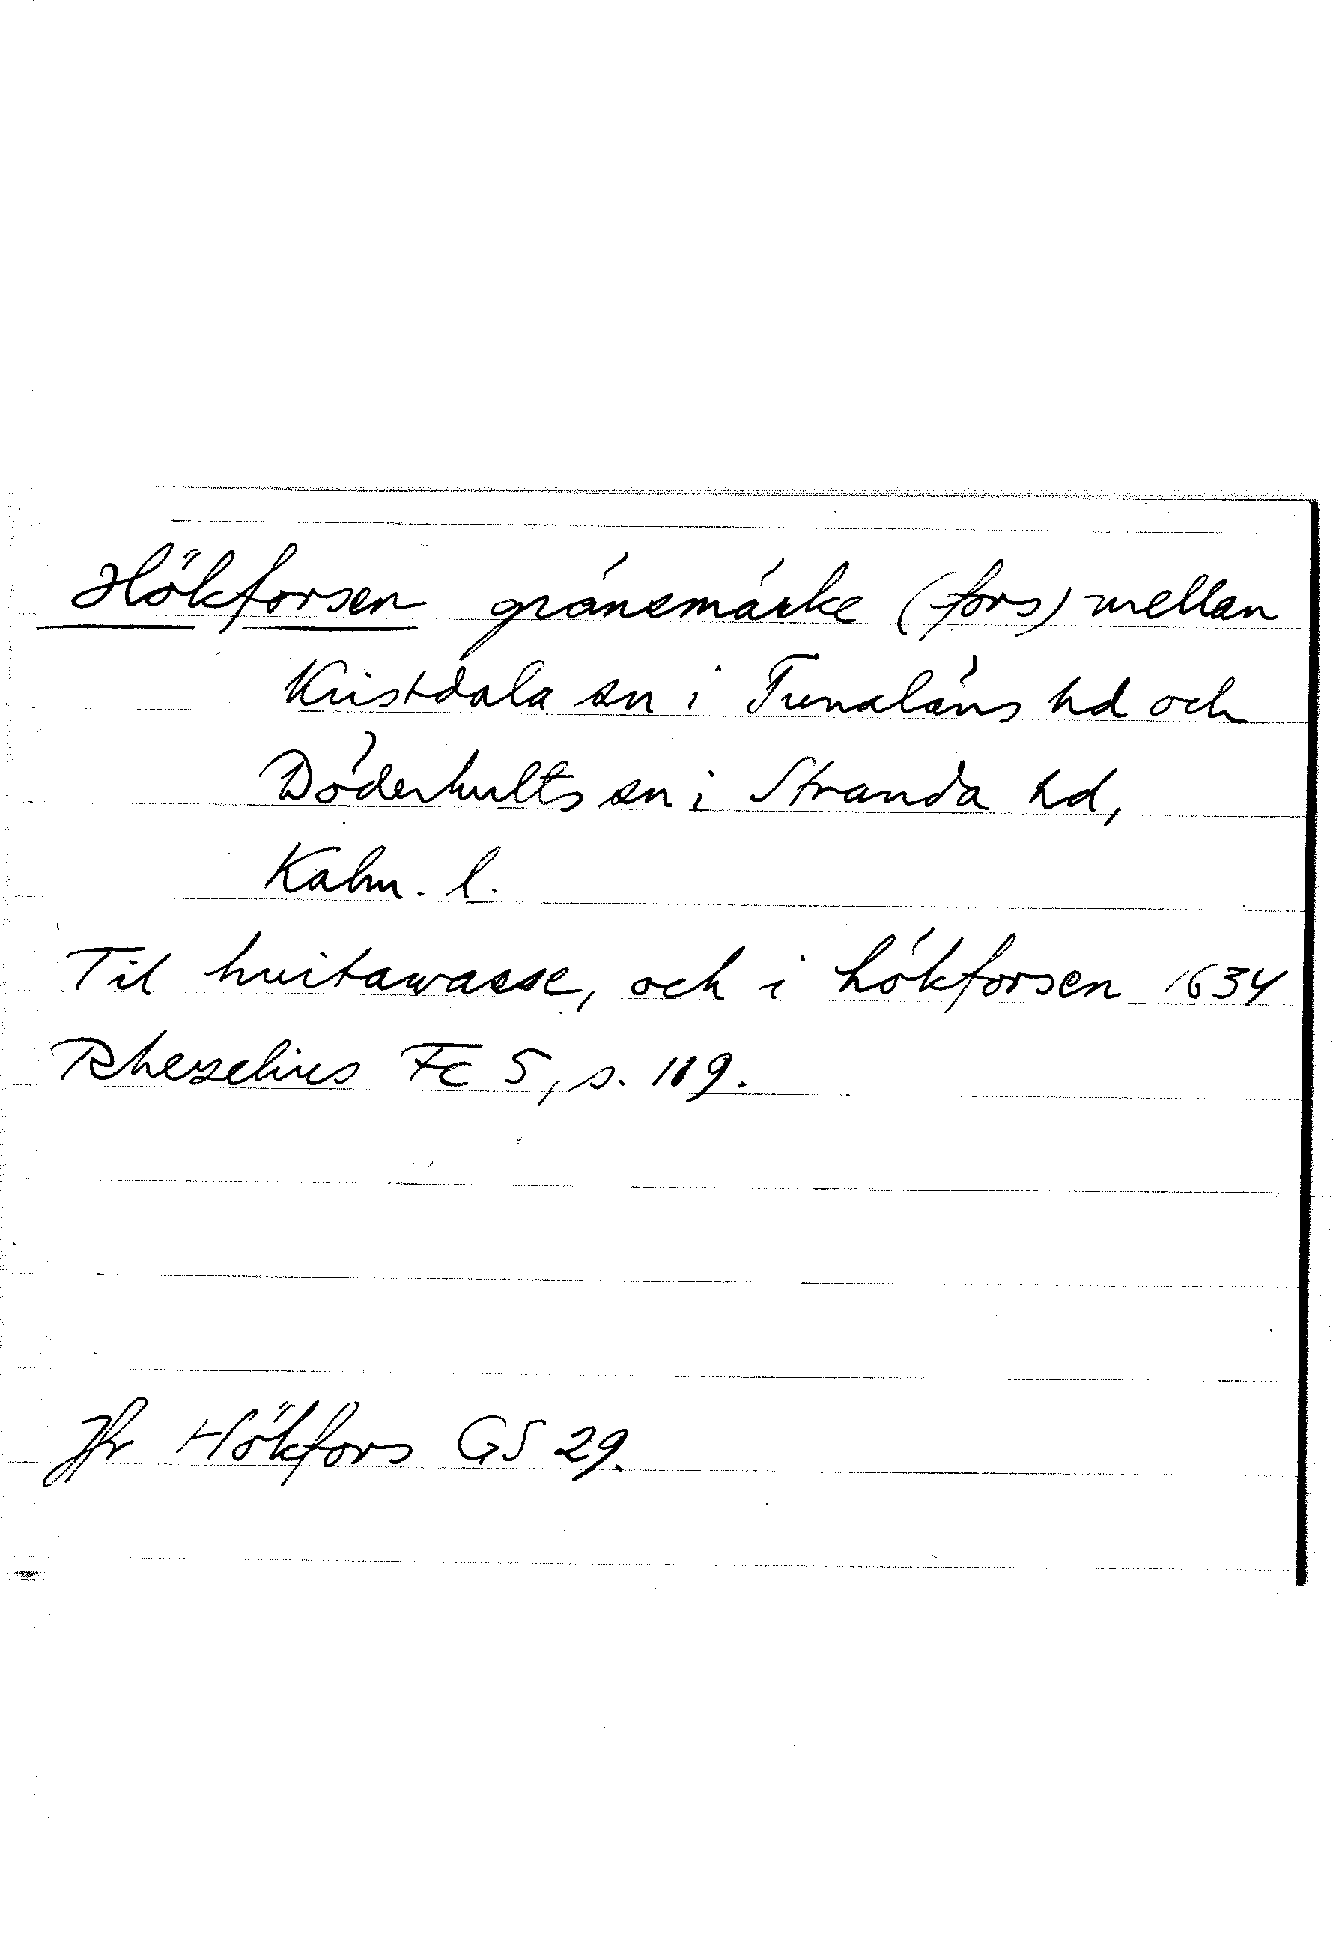 Hökforsen gränsmärke (fors) mellan
Kristdala sn i Tunaläns hd och
Döderhults sn i Stranda hd,
Kalm. l.
Til huitawasse, och i hökforsen 1634
Rhezelius Fc 5, s. 119.
Jfr Hökfors GS 29.